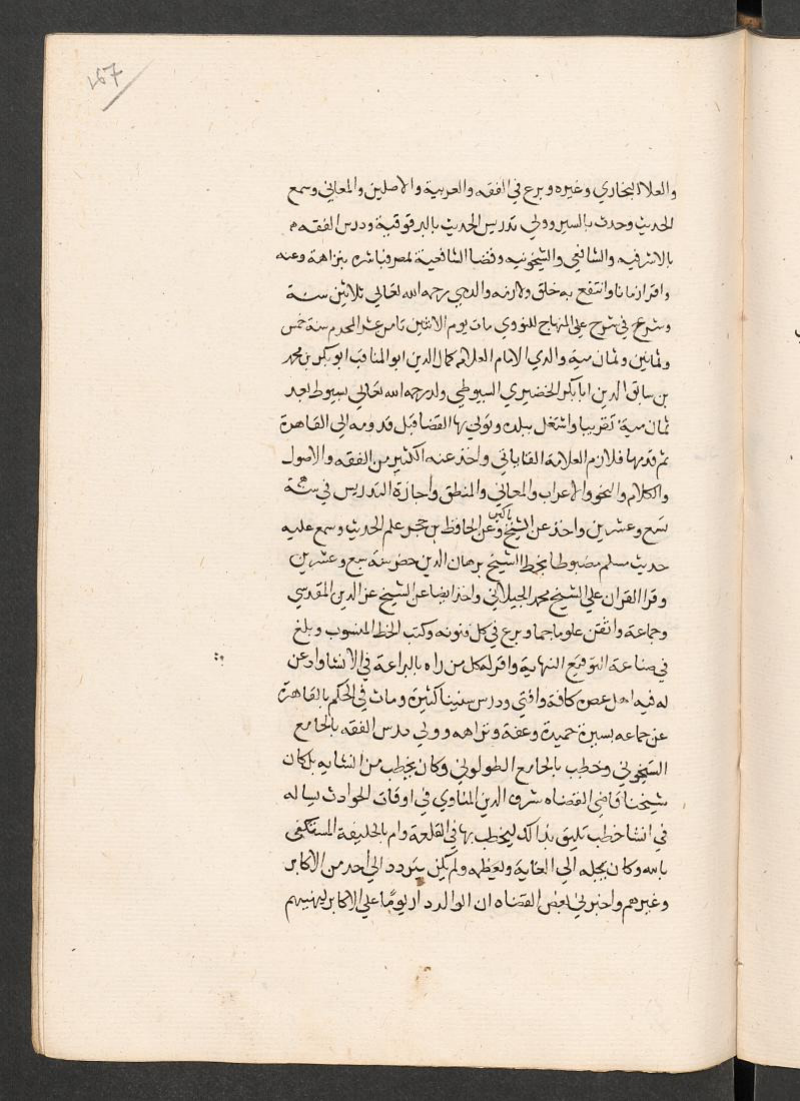 167
والعلا البخاري وغيره وبرع في الفقه والعربية والاصلين والمعاني وسمع
الحديث وحدث باليسير وولي تدريس الحديث بالبرقوقية ودرس الفقه
بالاشرفيه والشافعي والشيخونيه وقضا الشافعية بمصر فباشره بنزاهة وعفه
واقرا زمانا وانتفع به خلق ولازمه والدي رحمه الله تعالي ثلاثين سنة
وشرع في شرح علي المنهاج للنووي مات يوم الاثنين ثامن عشر المحرم سنة خمس
وثمانين وثمان مية والدي الامام العلامه كمال الدين ابو المناقب ابو بكر بن محمد
بن سابق الدين ابا بكر الخضيري السيوطي ولد رحمه الله تعالي بسيوط بعد
ثمان مية تقريبا واشتغل ببلده وتولي بها القضا قبل قدومه الي القاهرة
ثم قدمها فلازم العلامة القاياتي واخذ عنه الكثير من الفقه والاصول
والكلام والنحو والاعراب والمعاني والمنطق واجازة التدريس في سنة
تسع وعشرين واخذ عن الشيخ باكير وعن الحافظ بن حجر علم الحديث وسمع عليه
حديث مسلم مضبوطا بخط الشيخ برهان الدين خضر سنة سبع وعشرين
وقرا القران علي الشيخ محمد الجيلاني واخذ ايضا عن الشيخ عز الدين المقدسي
وجماعة واتقن علوما جما وبرع في كل فنونه وكتب الخط المنسوب وبلغ
في صناعة التوقيع النهاية واقر له كل من راه بالبراعة في الانشا واذعن
له فيه اهل عصره كافة وافتي ودرس سنينا كثيرة ومات في الحكم بالقاهرة
عن جماعه بسيرة حميدة وعفة ونزاهه وولي درس الفقه بالجامع
الشيخوني وخطب بالجامع الطولوني وكان يخطب من انشايه بل كان
شيخنا قاضي القضاه شرف الدين المناوي في اوقات الحوادث يساله
في انشا خطب تليق بذالك ليخطب بها في القلعة وام بالخليفة المستكفي
بالله وكان يجله الي الغاية ويعظمه ولم يكن يتردد الي احد من الاكابر
وغيرهم واخبرني بعض القضاه ان الوالد دار يوما علي الاكابر ليهنيهم